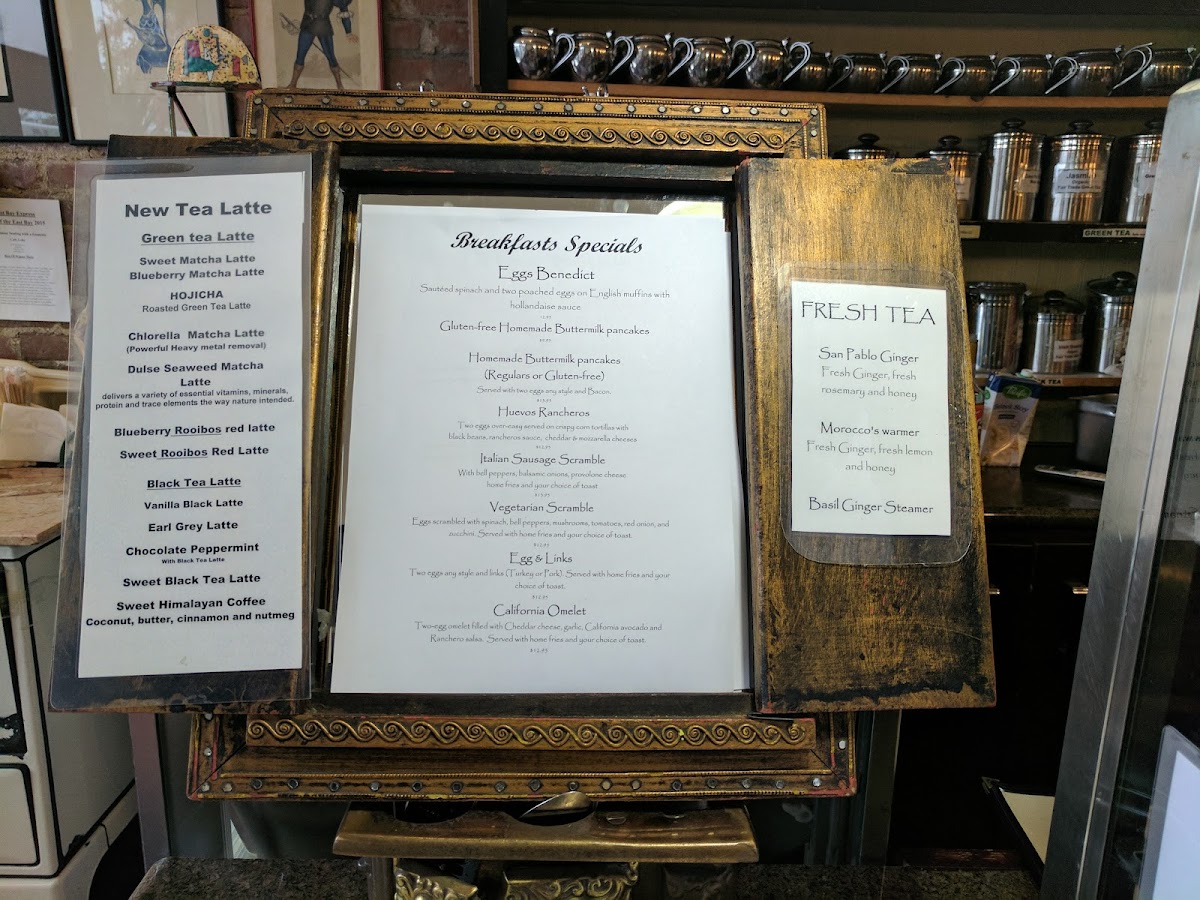 New Tea Latte
Green tea Latte
Sweet Matcha Latte
Blueberry Matcha Latte
HOJICHA
Roasted Green Tea Latte
Chlorella Matcha Latte
(Powerful Heavy metal removal)
Dulse Seaweed Matcha
Latte
delivers a variety of essential vitamins, minerals,
protein and trace elements the way nature intended.
Blueberry Rooibos red latte
Sweet Rooibos Red Latte
Black Tea Latte
Vanilla Black Latte
Earl Grey Latte
Chocolate Peppermint
With Black Tea Latte
Sweet Black Tea Latte
Sweet Himalayan Coffee
Coconut, butter, cinnamon and nutmeg
Breakfasts Specials
Eggs Benedict
Sautéed spinach and two poached eggs on English muffins with
hollandaise sauce
Gluten-free Homemade Buttermilk pancakes
Homemade Buttermilk pancakes
(Regulars or Gluten-free)
Served with two eggs any style and Bacon.
Huevos Rancheros
Two eggs over-easy served on crispy corn tortillas with
black beans, rancheros sauce, cheddar & mozzarella cheeses
Italian Sausage Scramble
With bell peppers, balsamic onions, provolone cheese
home fries and your choice of toast
Vegetarian Scramble
Eggs scrambled with spinach, bell peppers, mushrooms, tomatoes, red onion, and
zucchini. Served with home fries and your choice of toast.
$12.95
Egg & Links
Two eggs any style and links (Turkey or Pork). Served with home fries and your
choice of toast.
$12.95
California Omelet
Two-egg omelet filled with Cheddar cheese, garlic, California avocado and
Ranchero salsa. Served with home fries and your choice of toast.
$12.95
FRESH TEA
San Pablo Ginger
Fresh Ginger, fresh
rosemary and honey
Morocco's warmer
Fresh Ginger, fresh lemon
and honey
Basil Ginger Steamer
Jasmine
GREEN TEA
TEA